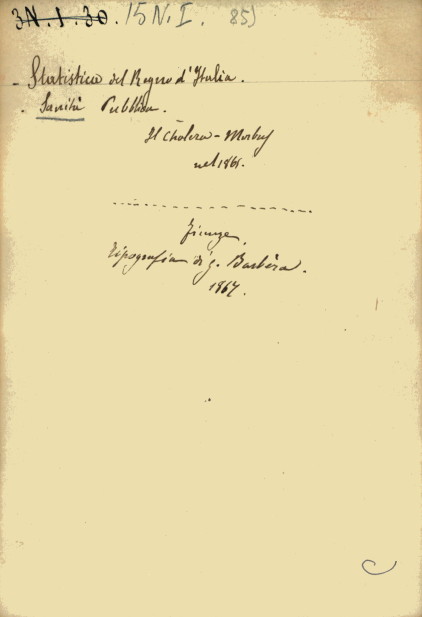 3N.1.30. 15 N. I. 85)
- Statistica del Regno d'Italia.
- Sanità Pubblica.
Il Cholera-Morbus
nel 1865.
Firenze
Tipografia di G. Barbèra.
1867.